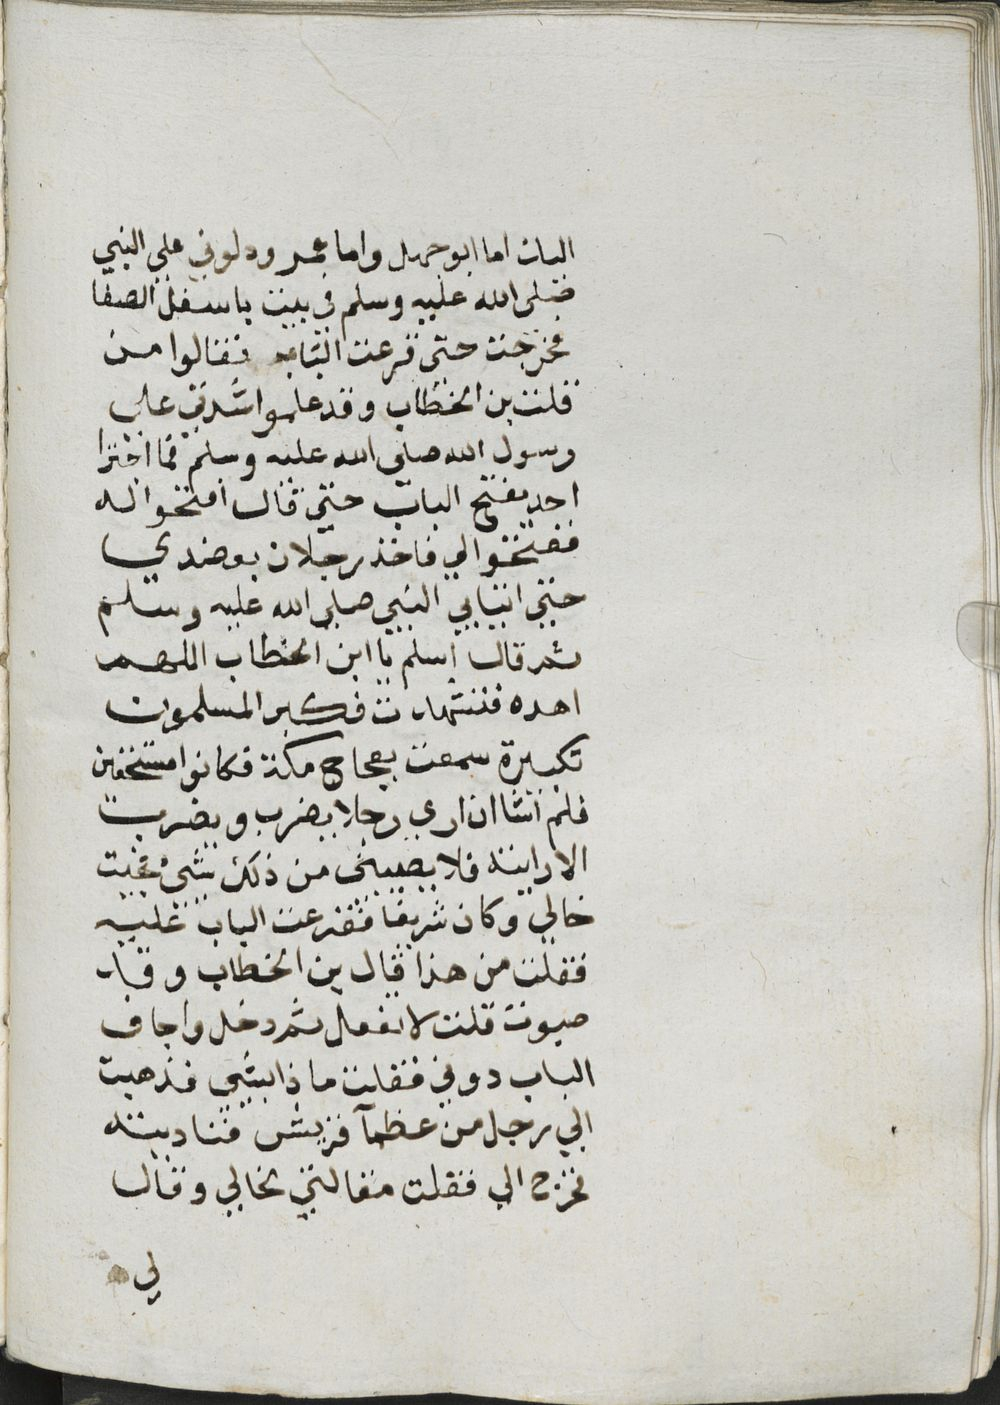 اليك اما ابو جهل واما عمر ودلوني على النبي
صلى الله عليه وسلم في بيت باسفل الصفا
فخرجت حتى قرعت الباب فقالوا من
قلت بن الخطاب وقد علموا شدتي على
رسول الله صلى الله عليه وسلم فما اجترا
احد بفتح الباب حتى قال افتحوا له
ففتحوا لي فاخذ رجلان بعضدي
حتى اتيا بي النبي صلى الله عليه وسلم
ثم قال اسلم يا ابن الخطاب اللهم
اهده فتشهدت فكبر المسلمون
تكبيرة سمعت بفجاج مكة فكانوا مستخفين
فلم اشا ان ارى رجلا يضرب ويضرب
الا رايته فلا يصيبني من ذلك شيء فجيت
خالي وكان شريفا فقرعت الباب عليه
فقلت من هذا قال بن الخطاب وقد
صبوت قلت لا تفعل ثم دخل واجاف
الباب دوني فقلت ما ذا بشي فذهبت
الي رجل من عظمآ قريش فناديته
فخرج الي فقلت مقالتي لخالي وقال
لي